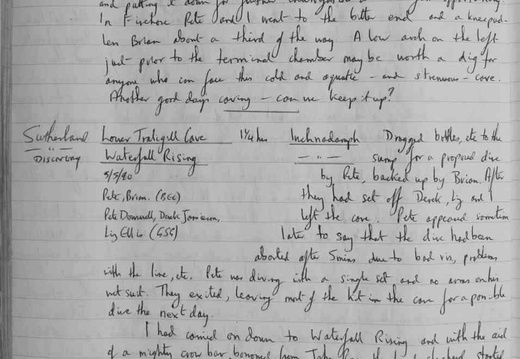 and putting it down for further
In Firehose Pete and I went to the bitter end and a kneepad-
less Brian about a third of the way. A low arch on the left
just prior to the terminal chamber may be worth a dig for
anyone who can face this cold and aquatic - and strenuous - cave.
Another good days caving - can we keep it up?
Sutherland Lower Traligill Cave 1¼ hrs Inchnadamph Dragged bottles, etc to the
- " - Discovery Waterfall Rising - " - sump for a proposed dive
5/5/90 by Pete, backed up by Brian. After
Pete, Brian. (BEC) they had set off Derek, Liz and I
Pete Dowswell, Derek Jamieson, left the cave. Pete appeared sometime
Liz Ellis (GSG) later to say that the dive had been
aborted after 5mins due to bad vis, problems
with the line, etc. Pete was diving with a single set and no arms on his
wet suit. They exited, leaving most of the kit in the cave for a possible
dive the next day.
I had carried on down to Waterfall Rising and with the aid
of a mighty crow bar borrowed from started